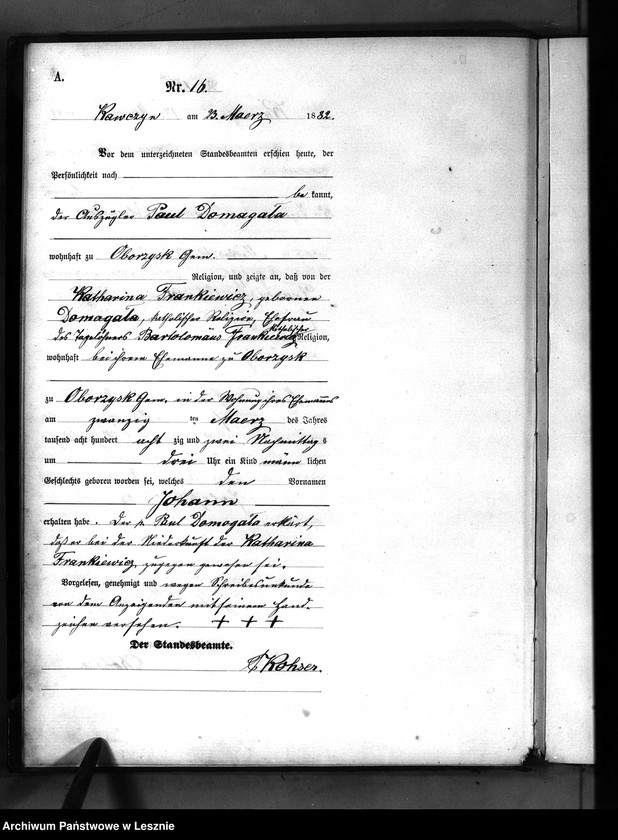 A.
Nr. 16.
Kawczyn am 23. Maerz 1882.
Vor dem unterzeichneten Standesbeamten erschien heute, der
Persönlichkeit nach
be kannt,
der Auszügler Paul Domagała
wohnhaft zu Oborzysk Gem.
Religion, und zeigte an, daß von der
Katharina Frankiewicz, geborenen
Domagała, katholischer Religion, Ehefrau
des Tagelöhners Bartolomäus Frankiewicz katholischer Religion,
wohnhaft bei ihrem Ehemanne zu Oborzysk
zu Oborzysk Gem. in der Wohnung ihres Ehemannes
am zwanzig ten Maerz des Jahres
tausend acht hundert acht zig und zwei Nachmittag s
um drei Uhr ein Kind männ lichen
Geschlechts geboren worden sei, welches den Vornamen
Johann
erhalten habe. Der p. Paul Domagała erklärt,
daß er bei der Niederkunft der Katharina
Frankiewicz zugegen gewesen sei.
Vorgelesen, genehmigt und wegen Schreibesunkunde
von dem Anzeigenden mit seinem Hand-
zeichen versehen. + + +
Der Standesbeamte.
Kohser.
Archiwum Państwowe w Lesznie